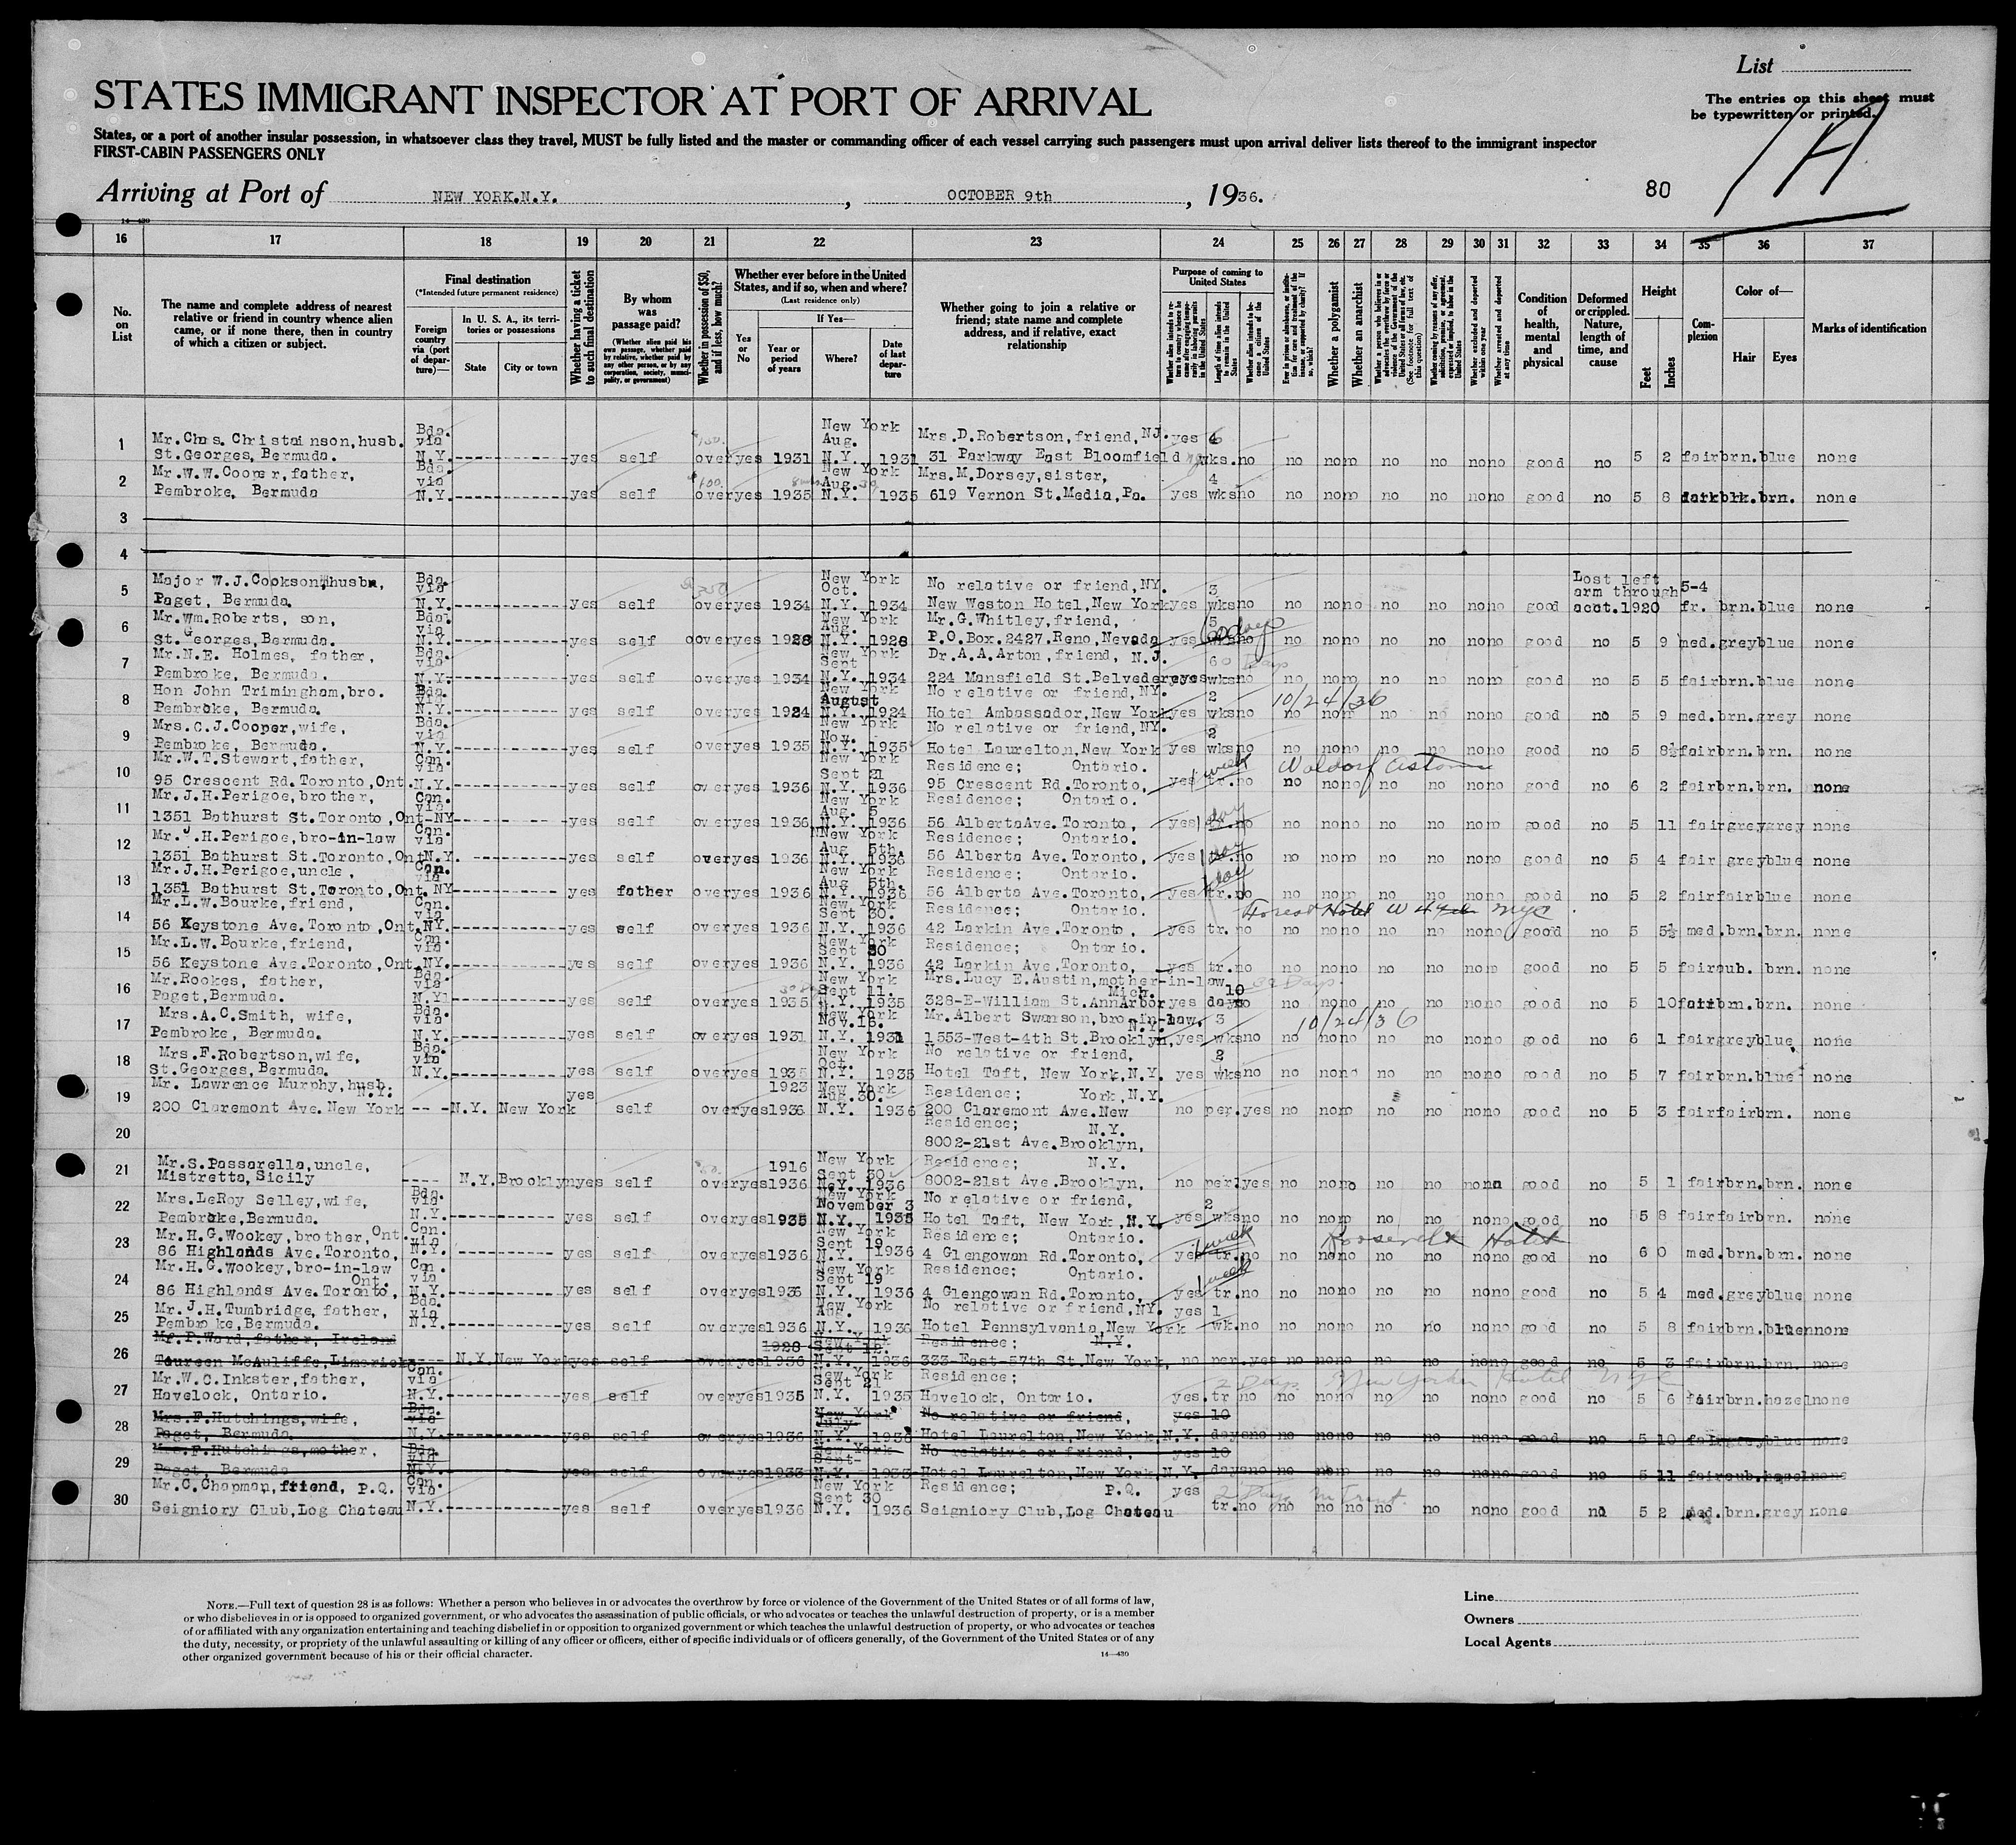 List
STATES IMMIGRANT INSPECTOR AT PORT OF ARRIVAL
The entries on this sheet must
be typewritten or printed.
States, or a port of another insular possession, in whatsoever class they travel, MUST be fully listed and the master or commanding officer of each vessel carrying such passengers must upon arrival deliver lists thereof to the immigrant inspector
FIRST-CABIN PASSENGERS ONLY
Arriving at Port of NEW YORK.N.Y. , OCTOBER 9th , 1936. 80
14—430
16 17 18 19 20 21 22 23 24 25 26 27 28 29 30 31 32 33 34 35 36 37
No. on List
The name and complete address of nearest relative or friend in country whence alien came, or if none there, then in country of which a citizen or subject.
Final destination
(*Intended future permanent residence)
Foreign country via (port of departure)—
In U. S. A., its territories or possessions
State
City or town
Whether having a ticket to such final destination
By whom was passage paid?
(Whether alien paid his own passage, whether paid by relative, whether paid by any other person, or by any corporation, society, municipality, or government)
Whether in possession of $50, and if less, how much?
Whether ever before in the United States, and if so, when and where?
(Last residence only)
Yes or No
If Yes—
Year or period of years
Where?
Date of last departure
Whether going to join a relative or friend; state name and complete address, and if relative, exact relationship
Purpose of coming to United States
Length of time alien intends to remain in the United States
Whether alien intends to become a citizen of the United States
Whether a polygamist
Whether an anarchist
Whether excluded and deported within one year
Whether arrested and deported at any time
Condition of health, mental and physical
Deformed or crippled. Nature, length of time, and cause
Height
Feet
Inches
Complexion
Color of—
Hair
Eyes
Marks of identification
1 Mr.Chas. Christainson, husb. Bda. via New York Aug. Mrs.D.Robertson,friend,NJ. yes
St.Georges, Bermuda. N.Y. yes self over yes 1931 N.Y. 1931 31 Parkway East Bloomfield wks. no no no no no no no no good no 5 2 fair brn. blue none
2 Mr.W.W.Cooper, father, Bda. via New York Aug. Mrs.M.Dorsey, sister, 4
Pembroke, Bermuda N.Y. yes self over yes 1935 N.Y. 1935 619 Vernon St.Media,Pa. yes wks no no no no no no no no good no 5 8 dark blk. brn. none
3
4
5 Major W.J.Cookson, husbn, Bda. via New York Oct. No relative or friend,NY. 3 Lost left arm through 5-4
Paget, Bermuda. N.Y. yes self over yes 1934 N.Y. 1934 New Weston Hotel,New York yes wks no no no no no no no no good acct.1920 fr. brn. blue none
6 Mr.Wm.Roberts, son, Bda. via New York Aug. Mr.G.Whitley,friend,
St.Georges,Bermuda. N.Y. yes self over yes 1928 N.Y. 1928 P.O.Box.2427.Reno,Nevada yes no no no no no no no no good no 5 9 med. grey blue none
7 Mr.N.E. Holmes, father, Bda. via New York Sept Dr.A.A.Arton,friend, N.J. 60 Days
Pembroke, Bermuda. N.Y. yes self over yes 1934 N.Y. 1934 224 Mansfield St.Belvedere yes wks no no no no no no no no good no 5 5 fair brn. blue none
8 Hon John Trimingham, bro. Bda. via New York August No relative or friend,NY. 2 10/24/36
Pembroke, Bermuda. N.Y. yes self over yes 1924 N.Y. 1924 Hotel Ambassador,New York yes wks no no no no no no no no good no 5 9 med. brn. grey none
9 Mrs.C.J.Cooper,wife, Bda. via New York Nov. No relative or friend,NY. 2
Pembroke, Bermuda. N.Y. yes self over yes 1935 N.Y. 1935 Hotel Laurelton,New York yes wks no no no no no no no no good no 5 8½ fair brn. brn. none
10 Mr.W.T.Stewart,father, Can. via New York Sept 21 Residence; Ontario. 1 week Waldorf Astoria
95 Crescent Rd.Toronto,Ont. N.Y. yes self over yes 1936 N.Y. 1936 95 Crescent Rd.Toronto, yes tr. no no no no no no no no good no 6 2 fair brn. brn. none
11 Mr.J.H.Perigoe, brother, Can. via New York Aug. 5 Residence; Ontario. 1 day
1351 Bathurst St.Toronto,Ont-NY yes self over yes 1936 N.Y. 1936 56 Alberta Ave. Toronto, yes no no no no no no no no good no 5 11 fair grey grey none
12 Mr.J.H.Perigoe,bro-in-law Can. via New York Aug 5th. Residence; Ontario. 1 day
1351 Bathurst St.Toronto,Ont N.Y. yes self over yes 1936 N.Y. 1936 56 Alberta Ave.Toronto, yes no no no no no no no no good no 5 4 fair grey blue none
13 Mr.J.H.Perigoe,uncle, Can. via New York Aug 5th. Residence; Ontario. 1 day
1351 Bathurst St.Toronto,Ont. NY yes father over yes 1936 N.Y. 1936 56 Alberta Ave.Toronto, yes tr. no no no no no no no no good no 5 2 fair fair blue none
14 Mr.L.W.Bourke,friend, Can. via New York Sept 30. Residence; Ontario. Forest Hotel W 49 NYC
56 Keystone Ave.Toronto,Ont. NY. yes self over yes 1936 N.Y. 1936 42 Larkin Ave.Toronto, yes tr. no no no no no no no no good no 5 5½ med. brn. brn. none
15 Mr.L.W.Bourke,friend, Can. via New York Sept 30 Residence; Ontario.
56 Keystone Ave.Toronto,Ont. NY. yes self over yes 1936 N.Y. 1936 42 Larkin Ave.Toronto, yes tr. no no no no no no no no good no 5 5 fair aub. brn. none
16 Mr.Rookes, father, Bda. via New York Sept 11. Mrs.Lucy E.Austin,mother-in-law Mich. 10
Paget,Bermuda. N.Y. yes self over yes 1935 N.Y. 1935 328-E-William St.AnnArbor yes days no no no no no no no no good no 5 10 fair brn. brn. none
17 Mrs.A.C.Smith, wife, Bda. via New York Nov.16. Mr.Albert Swanson,bro-in-law, N.Y. 3 10/24/36
Pembroke, Bermuda. N.Y. yes self over yes 1931 N.Y. 1931 1553-West-4th St.Brooklyn, yes wks no no no no no no no no good no 6 1 fair grey blue none
18 Mrs.F.Robertson,wife, Bda. via New York Oct. No relative or friend, 2
St.Georges,Bermuda. N.Y. yes self over yes 1935 N.Y. 1935 Hotel Taft, New York,N.Y. yes wks no no no no no no no no good no 5 7 fair brn. blue none
19 Mr. Lawrence Murphy,husb. N.Y. yes 1923 New York Aug.30. Residence; York,N.Y.
200 Claremont Ave.New York N.Y. New York self over yes 1936 N.Y. 1936 200 Claremont Ave.New no per. yes no no no no no no no good no 5 3 fair fair brn. none
20 Residence; N.Y.
8002-21st Ave.Brooklyn,
21 Mr.S.Passarella,uncle, 1916 New York Sept 30 Residence; N.Y.
Mistretta,Sicily N.Y. Brooklyn yes self over yes 1936 N.Y. 1936 8002-21st Ave.Brooklyn, no per. yes no no no no no no no good no 5 1 fair brn. brn. none
22 Mrs.LeRoy Selley,wife, Bda. via New York November 3 No relative or friend, 2
Pembroke,Bermuda. N.Y. yes self over yes 1935 N.Y. 1935 Hotel Taft, New York,N.Y. yes wks no no no no no no no no good no 5 8 fair fair brn. none
23 Mr.H.G.Wookey,brother, Ont. Can. via New York Sept 19 Residence; Ontario. 1 week Roosevelt Hotel
86 Highlands Ave.Toronto, N.Y. yes self over yes 1936 N.Y. 1936 4 Glengowan Rd.Toronto, yes tr. no no no no no no no no good no 6 0 med. brn. brn. none
24 Mr.H.G.Wookey,bro-in-law Ont. Can. via New York Sept 19 Residence; Ontario. 1 week
86 Highlands Ave.Toronto, N.Y. yes self over yes 1936 N.Y. 1936 4 Glengowan Rd.Toronto, yes tr. no no no no no no no no good no 5 4 med. grey blue none
25 Mr.J.H.Tumbridge,father, Bda. New York Aug. No relative or friend,NY. yes 1
Pembroke,Bermuda. N.Y. yes self over yes 1936 N.Y. 1936 Hotel Pennsylvania,New York wk. no no no no no no no no good no 5 8 fair brn. blue none
26 Mr.P.Ward,father, Ireland 1928 New York Sept 12. Residence; N.Y.
Toureen McAuliffe,Limerick N.Y. New York yes self over yes 1936 N.Y. 1936 333-East-57th St.New York, no per. yes no no no no no no no good no 5 3 fair brn. brn. none
27 Mr.W.C.Inkster,father, Can. via New York Sept 21 Residence; 2 Days New Yorker Hotel NYC
Havelock, Ontario. N.Y. yes self over yes 1935 N.Y. 1935 Havelock, Ontario. yes. tr no no no no no no no no good no 5 6 fair brn. hazel none
28 Mrs.F.Hutchings,wife, Bda. via New York July No relative or friend, yes 10
Paget, Bermuda. N.Y. yes self over yes 1936 N.Y. 1936 Hotel Laurelton,New York,N.Y. days no no no no no no no no good no 5 10 fair grey blue none
29 Mrs.F.Hutchings,mother, Bda. via New York Sept- No relative or friend, yes 10
Paget, Bermuda N.Y. yes self over yes 1933 N.Y. 1933 Hotel Laurelton,New York,N.Y. days no no no no no no no no good no 5 11 fair aub. hazel none
30 Mr.C.Chapman,friend, P.Q. Can. via New York Sept 30 Residence; P.Q. yes 2 Days
Seigniory Club,Log Chateau N.Y. yes self over yes 1936 N.Y. 1936 Seigniory Club,Log Chateau tr. no no no no no no no no good no 5 2 med. brn. grey none
NOTE.—Full text of question 28 is as follows: Whether a person who believes in or advocates the overthrow by force or violence of the Government of the United States or of all forms of law,
or who disbelieves in or is opposed to organized government, or who advocates the assassination of public officials, or who advocates or teaches the unlawful destruction of property, or is a member
of or affiliated with any organization entertaining and teaching disbelief in or opposition to organized government or which teaches the unlawful destruction of property, or who advocates or teaches
the duty, necessity, or propriety of the unlawful assaulting or killing of any officer or officers, either of specific individuals or of officers generally, of the Government of the United States or of any
other organized government because of his or their official character.
14—430
Line
Owners
Local Agents